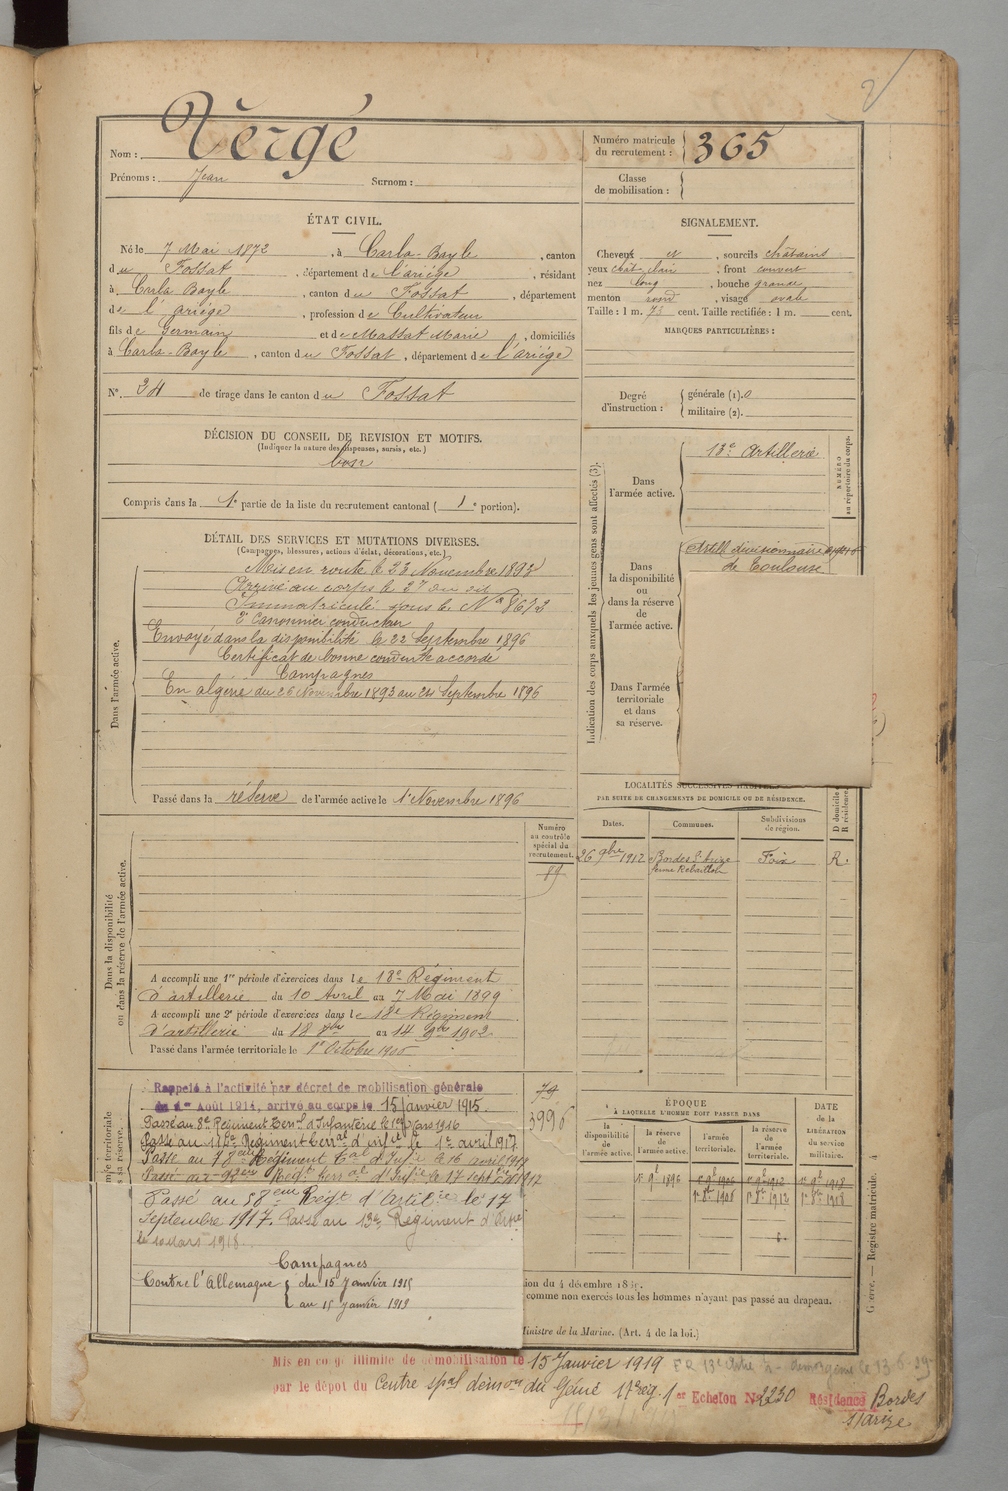 2
Nom : Vergé
Prénoms : Jean Surnom :
Numéro matricule du recrutement : 365
Classe de mobilisation :
ÉTAT CIVIL.
Né le 7 Mai 1872, à Carla-Bayle, canton
du Fossat, département de l'ariége, résidant
à Carla Bayle, canton du Fossat, département
de l'ariége, profession de Cultivateur
fils de Germain et de Massat Marie, domiciliés
à Carla-Bayle, canton du Fossat, département de l'ariége
N° 34 de tirage dans le canton du Fossat
DÉCISION DU CONSEIL DE REVISION ET MOTIFS.
(Indiquer la nature des dispenses, sursis, etc.)
bon
Compris dans la 1e partie de la liste du recrutement cantonal (1e portion).
SIGNALEMENT.
Cheveux N, sourcils châtains
yeux chât. clair, front couvert
nez long, bouche grande
menton rond, visage ovale
Taille : 1 m. 73 cent. Taille rectifiée : 1 m. cent.
MARQUES PARTICULIÈRES :
Degré d'instruction : générale (1). 0
militaire (2).
DÉTAIL DES SERVICES ET MUTATIONS DIVERSES.
(Campagnes, blessures, actions d'éclat, décorations, etc.)
Dans l'armée active.
Mis en route le 23 Novembre 1893
Arrivé au corps le 27 du dit
Immatriculé sous le N° 8672
2e Canonnier conducteur
Envoyé dans la disponibilité le 22 Septembre 1896
Certificat de bonne conduite accordé
Campagnes
En algérie du 26 Novembre 1893 au 24 Septembre 1896
Passé dans la réserve de l'armée active le 1e Novembre 1896
Indication des corps auxquels les jeunes gens sont affectés (3).
Dans l'armée active.
13e Artillerie
NUMÉRO au répertoire du corps.
Dans la disponibilité ou dans la réserve de l'armée active.
Artill divisionnaire
de Toulouse
Dans l'armée territoriale et dans sa réserve.
LOCALITÉS SUCCESSIVES
PAR SUITE DE CHANGEMENTS DE DOMICILE OU DE RÉSIDENCE.
Dates. Communes. Subdivisions de région. D domicile R résidence
26 9bre 1912 Bordes s/ Arize Foix R.
ferme Rebaillou
Dans la disponibilité ou dans la réserve de l'armée active.
Numéro au contrôle spécial du recrutement.
A accompli une 1re période d'exercices dans le 18e Régiment
d'artillerie du 10 Avril au 7 Mai 1899
A accompli une 2e période d'exercices dans le 18e Régiment
d'artillerie du 18 8bre au 14 9bre 1902
Passé dans l'armée territoriale le 1er Octobre 1906
Rappelé à l'activité par décret de mobilisation générale
du 1er Août 1914, arrivé au corps le 15 janvier 1915.
79
3996
Passé au 8e Régiment Terrial d'Infanterie le 1er Mars 1916
Passé au 116e Régiment Terral d'infie le 1er avril 1917
Passé au 78eme Régiment Tal d'Infie le 16 avril 1917
Passé au 58eme Régt d'Artilrie le 17
Septembre 1917. Passé au 13e Régiment d'Artie
le 10 Mars 1918.
Campagnes
Contre l'Allemagne du 15 Janvier 1915
au 15 Janvier 1919
ÉPOQUE
À LAQUELLE L'HOMME DOIT PASSER DANS
la disponibilité de l'armée active. la réserve de l'armée active. l'armée territoriale. la réserve de l'armée territoriale.
DATE de la LIBÉRATION du service militaire.
1e 9b 1896 1e 9b 1906 1e 9b 1912 1e 9b 1918
1e 8b 1906 1e 8b 1912 1e 8b 1918
comme non exercés tous les hommes n'ayant pas passé au drapeau.
Ministre de la Marine. (Art. 4 de la loi.)
Registre matricule. 4
Mis en congé illimité de démobilisation le 15 Janvier 1919
par le dépôt du Centre spal démon du Génie 17e rég. 1er Echelon N° 2230 Résidence Bordes
s/ Arize